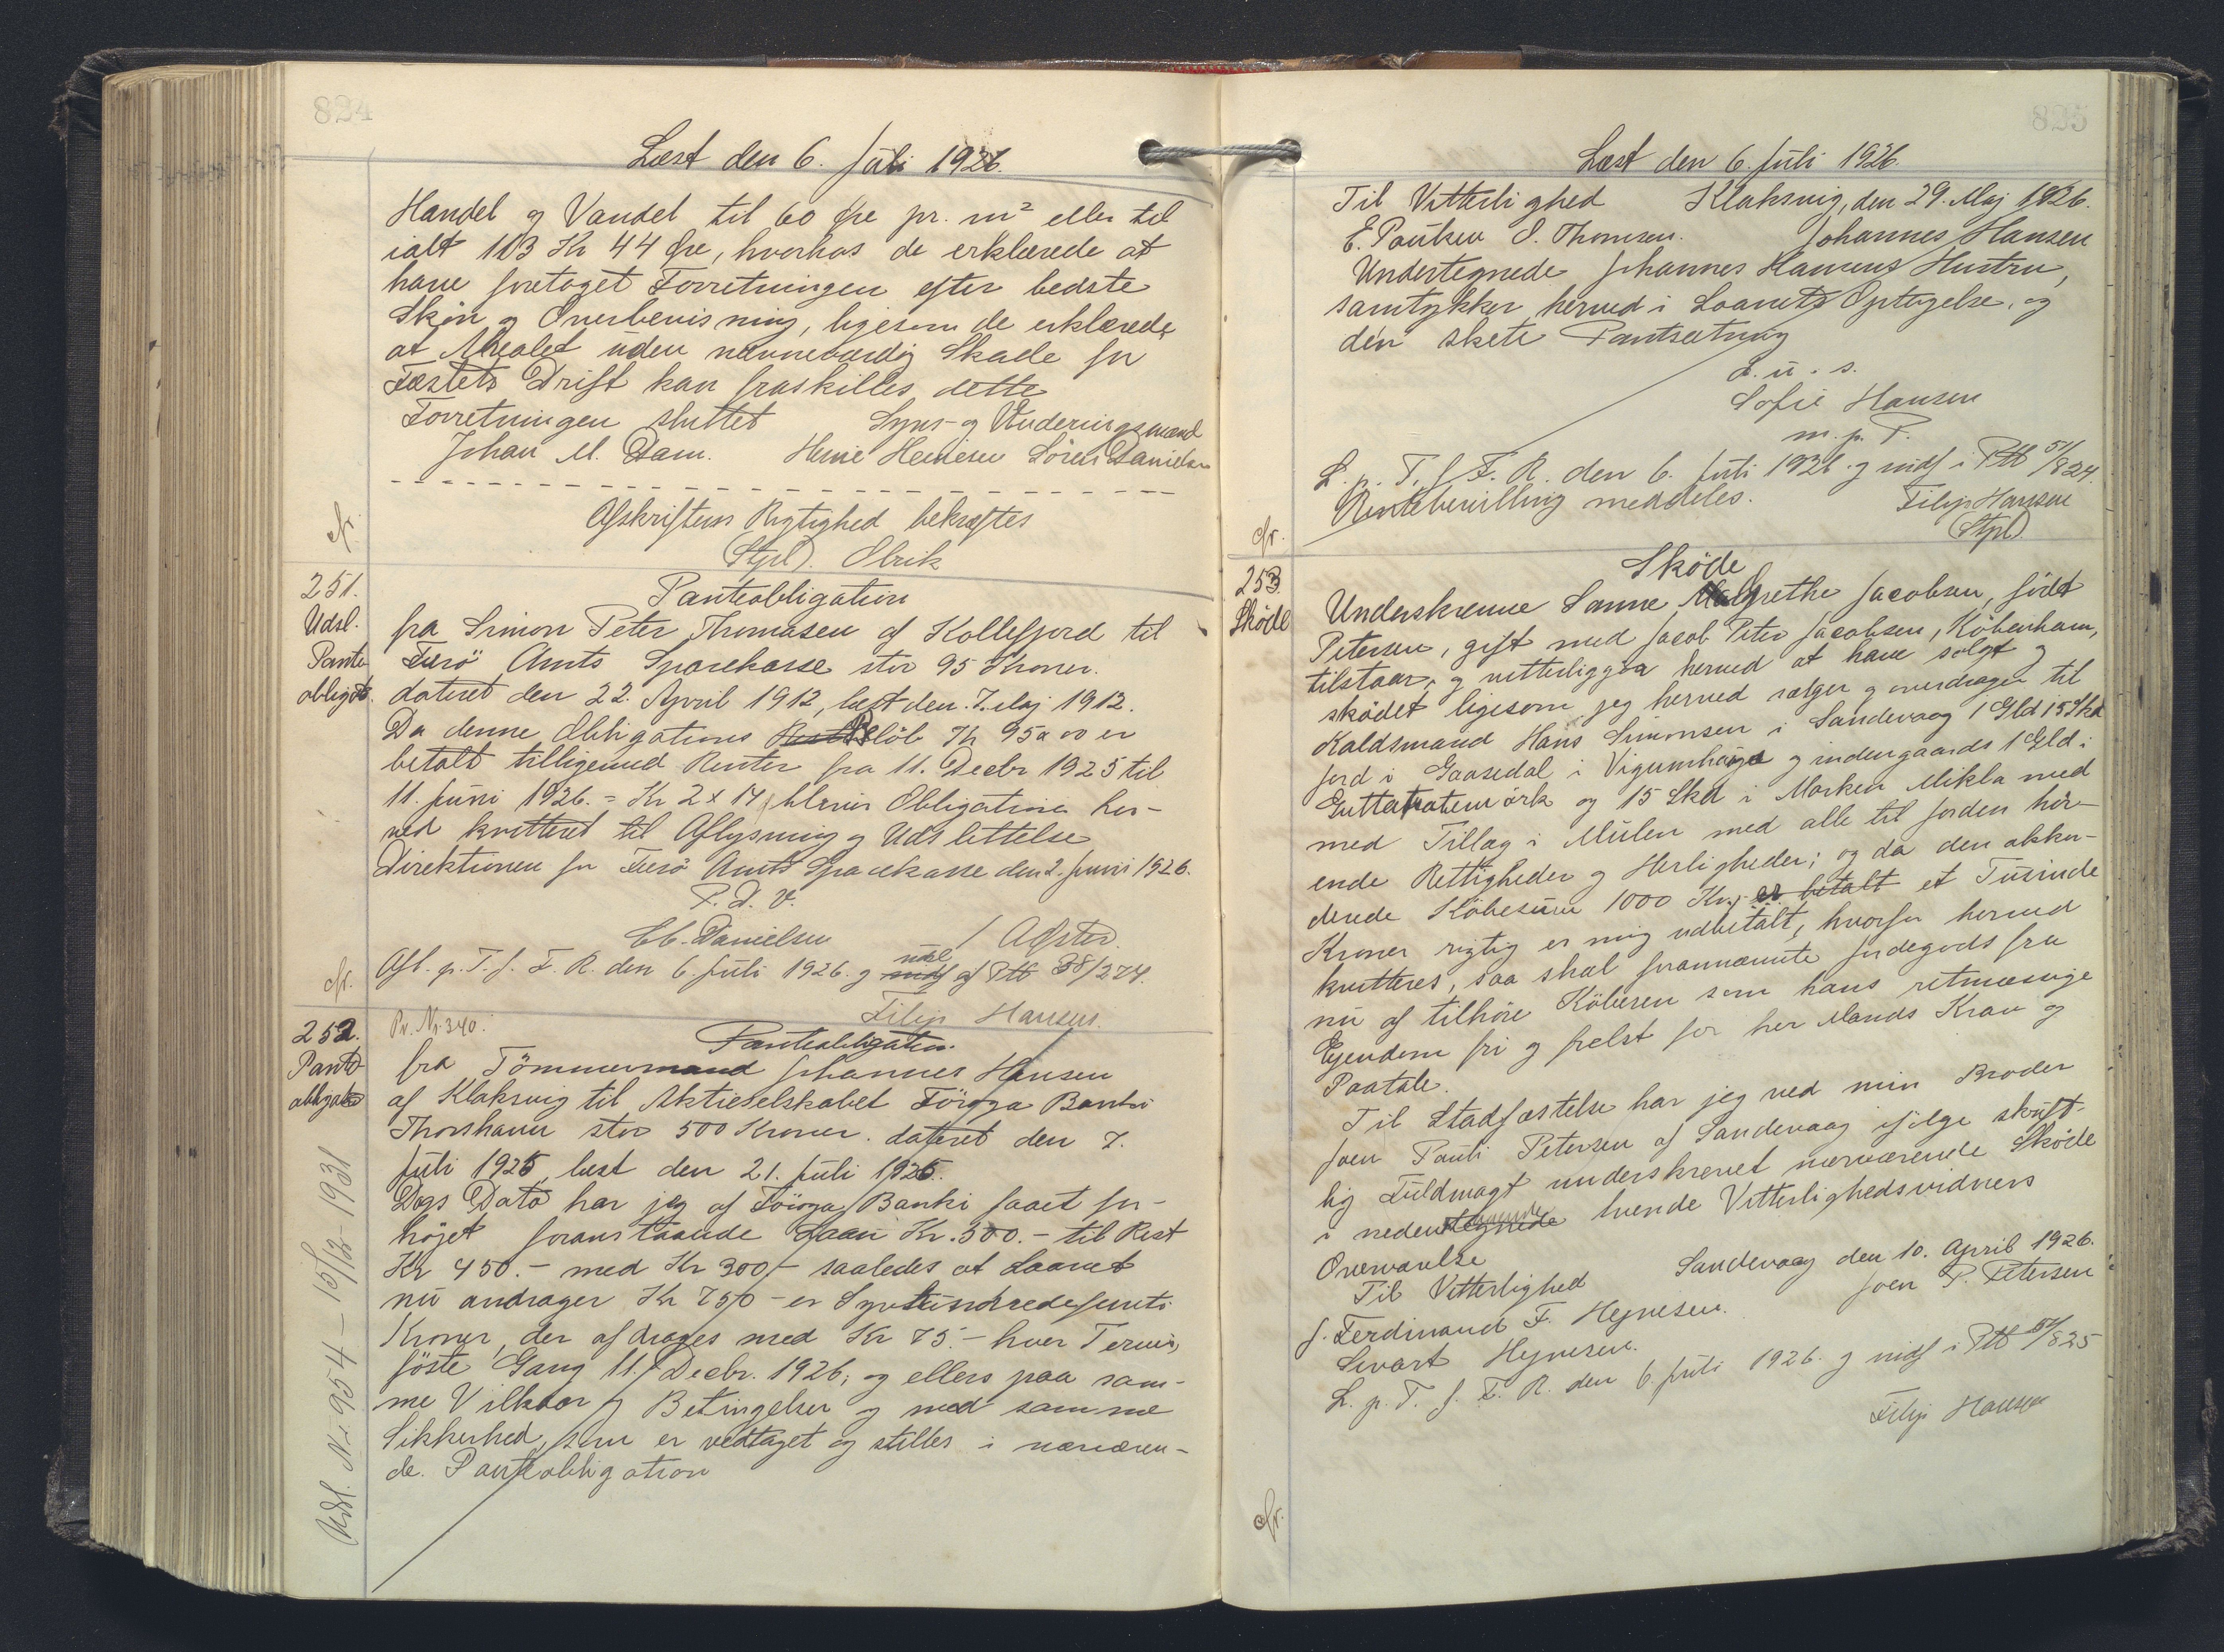 824
Læst den 6. Juli 1926.
Handel og Vandel til 60 Øre pr. m² eller til
ialt 103 Kr 44 Øre, hvorhos de erklærede at
have foretaget Forretningen efter bedste
Skön og Overbevisning, ligesom de erklærede
at Arealet uden nævneværdig Skade for
Fæstets Drift kan fraskilles dette
Forretningen sluttet Syns- og Vurderingsmænd
Johan M. Dam. Heine Heinesen Sören Danielsen
Afskriftens Rigtighed bekræftes
(Stpl). Olrik
cfr.
251.
Udsl.
Pante
obligat.
Panteobligation
fra Simon Peter Thomasen af Kollefjord til
Færö Amts Sparekasse stor 95 Kroner.
dateret den 22. April 1912, læst den 7. Maj 1912.
Da denne Obligations Rest Beløb Kr 95 a 00 er
betalt tilligemed Renter fra 11. Decbr 1925 til
11. Juni 1926. = Kr 2 x 14 bliver Obligationen her-
ved kvitteret til Aflysning og Udslettelse
Direktionen for Færö Amts Sparekasse den 2. Juni 1926.
P. D. V.
Chr. Danielsen / Aster.
udsl
Afl. p. T. f. F. R. den 6. Juli 1926. og indf af Ptb 38/274.
Filip Hansen.
cfr.
252.
Pante
obligation
Pr. Nr 340.
Panteobligation.
fra Tömmermand Johannes Hansen
af Klaksvig til Aktieselskabet Föroya Banki
Thorshavn stor 500 Kroner. dateret den 7.
Juli 1925, læst den 21. Juli 1925.
Dags Dato har jeg af Föroya Banki faaet for-
höjet foranstaaende Laan Kr. 500.- til Rest
Kr 450.- med Kr 300,- saaledes at Laanet
nu andrager Kr 750 - er Syvhundredefemti
Kroner, der afdrages med Kr 75 - hver Termin,
föste Gang 11. Decbr. 1926; og ellers paa sam-
me Vilkaar og Betingelser og med samme
Sikkerhed, som er vedtaget og stilles i nærværen-
de. Panteobligation
Udsl. Nr 954 - 15/12- 1931
825
Læst den 6. Juli 1926.
Til Vitterlighed Klaksvig, den 29. Maj 1926.
E. Poulsen O. Thomsen. Johannes Hansen
Undertegnede Johannes Hansens Hustru,
samtykker herved i Laanets Optagelse, og
den skete Pantsætning
D. u. s.
Sofie Hansen
m. p. P.
L. p. T. f. F. R. den 6. Juli 1926. og indf i Ptb 51/824.
Rentebevilling meddeles. Filip Hansen
(Stpl).
cfr.
253.
Sköde
Sköde
Underskrevne Sanne Malgrethe Jacobsen, födt
Petersen, gift med Jacob Peter Jacobsen, Köbenhavn,
tilstaar, og vitterliggör herved at have solgt og
sködet ligesom jeg herved sælger og overdrager til
Kaldsmand Hans Simonsen i Sandevaag 1 Gld 15 Skd
Jord i Gaasedal i Vigumhaga og indengaards 1 Gld i
Guttatratemörk og 15 Skd i Marken Mikla med
med Tillæg i Mulen med alle til Jorden hör-
ende Rettigheder og Herligheder; og da den akkor-
derede Köbesum 1000 Kr, er betalt et Tusinde
Kroner rigtig er mig udbetalt, hvorfor herved
kvitteres, saa skal forannævnte Jordegods fra
nu af tilhöre Köberen som hans retmæssige
Ejendom fri og frelst for hver Mands Krav og
Paatale.
Til Stadfæstelse har jeg ved min Broder
Joen Pauli Petersen af Sandevaag ifölge skrift-
lig Fuldmagt underskrevet nærværende Sköde
i nedentegnede tvende Vitterlighedsvidners
Overværelse
Til Vitterlighed Sandevaag den 10. April 1926.
J. Ferdinand F. Heynesen. Joen P. Petersen
Sivart Heynesen.
L. p. T. f. F. R. den 6. Juli 1926. og indf i Ptb 51/825
Filip Hansen
cfr.